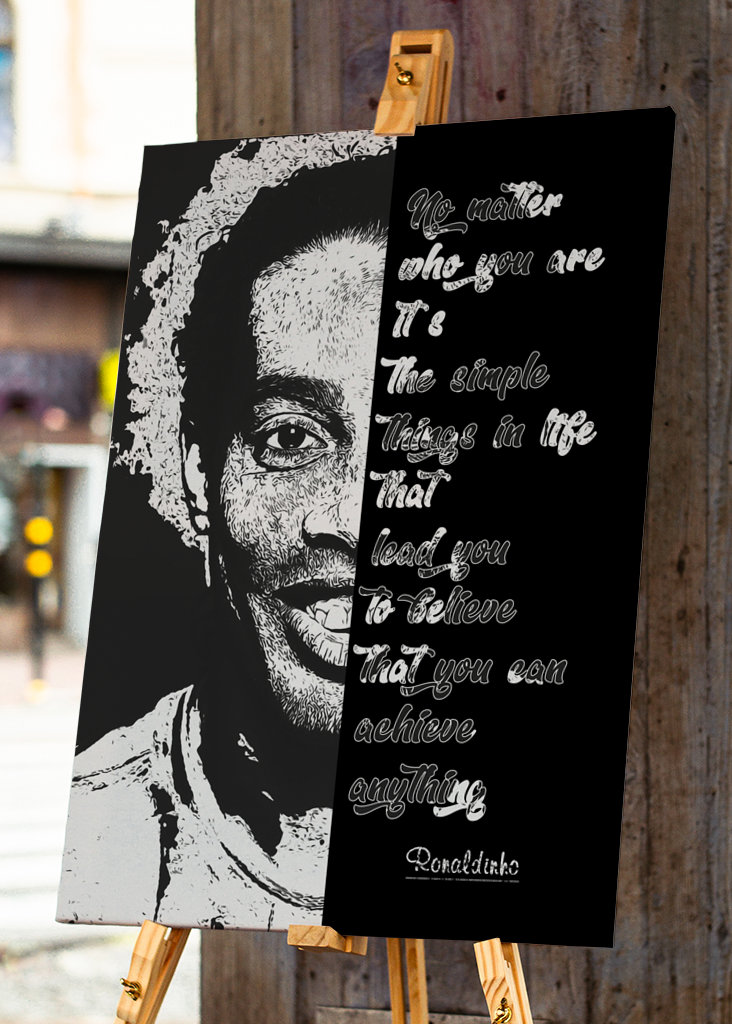 No matter
who you are
It's
The simple
Things in life
That
lead you
To Believe
That you can
achieve
anything
Ronaldinho